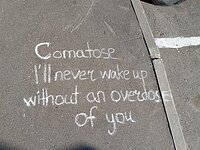 Comatose
I'll never wake up
without an overdose
of you